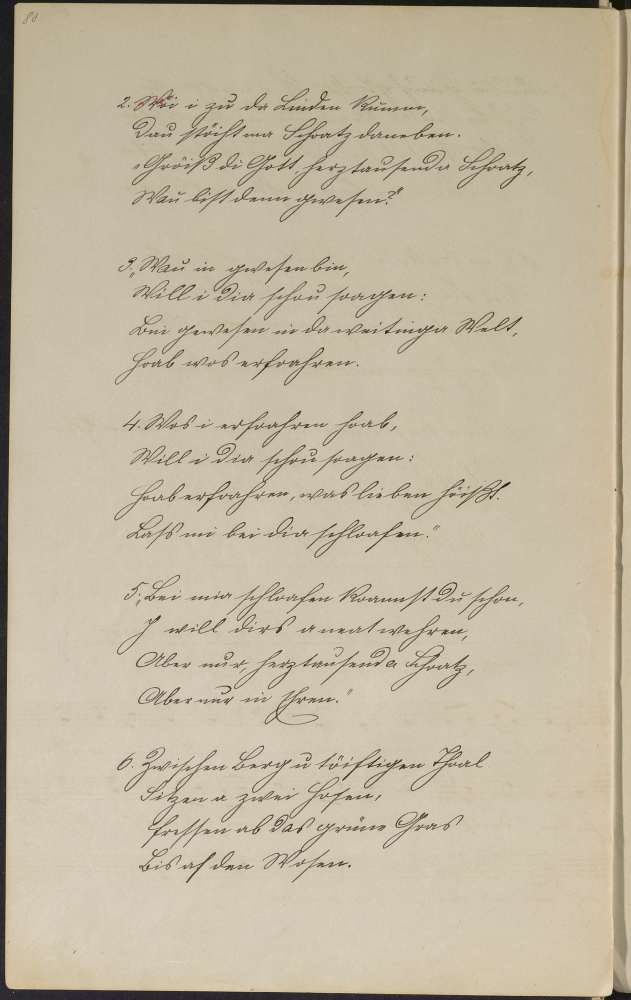 80
2. Wöi i zu da Linden kumm,
Dau stäiht ma Schoatz daneben.
„Gröiß di Gott, herztausenda Schoatz,
Wau bist denn gwesen?"
3. „Wau in gwesen bin,
Will i dia schou soagen:
Bin gewesen in da weitinga Welt,
Hoab wos erfoahren.
4. Wos i erfoahren hoab,
Will i dia schou soagen:
Hoab erfoahren, was lieben höißt.
Lass mi bei dia schloafen."
5. „Bei mia schloafen koannst du schon,
I will dirs a neat wehren,
Aber nur, herztausenda Schoatz,
Aber nur in Ehren."
6. Zwischen Berg u töiftigen Thoal
Sitzen a zwei Hosen,
Fressen ab das grüne Gras
Bis af den Wosen.